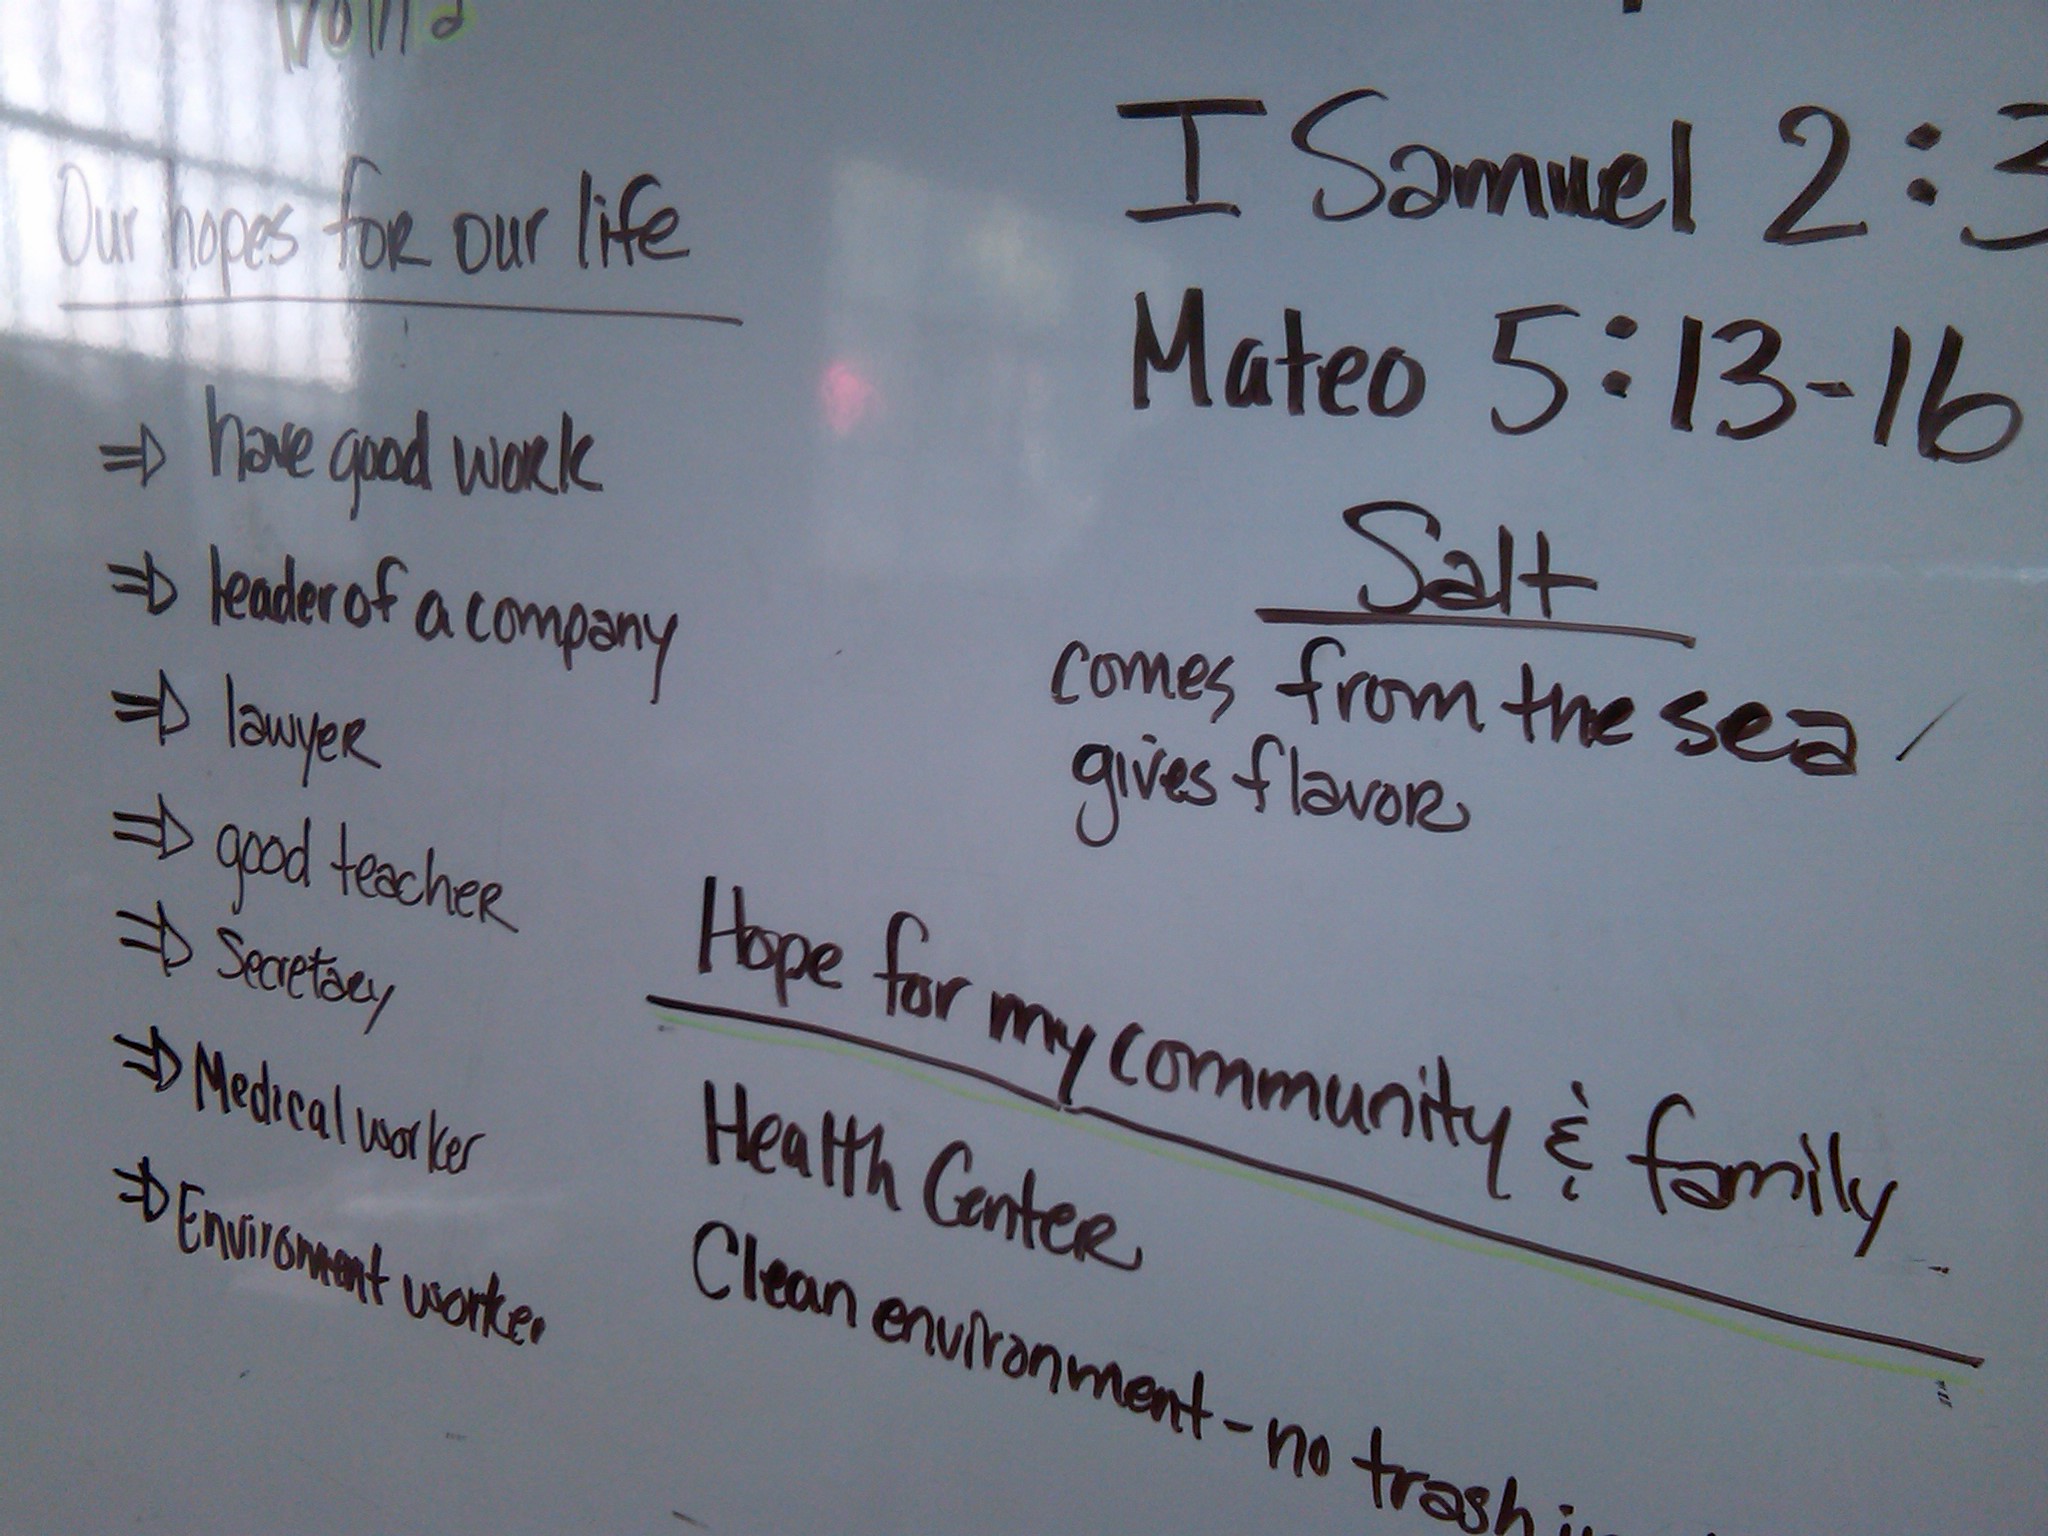 Our hopes for our life
⇒ have good work
⇒ leader of a company
⇒ lawyer
⇒ good teacher
⇒ Secretary
⇒ Medical worker
⇒ Environment worker
I Samuel 2:3
Mateo 5:13-16
Salt
comes from the sea
gives flavor
Hope for my community & family
Health Center
Clean environment - no trash